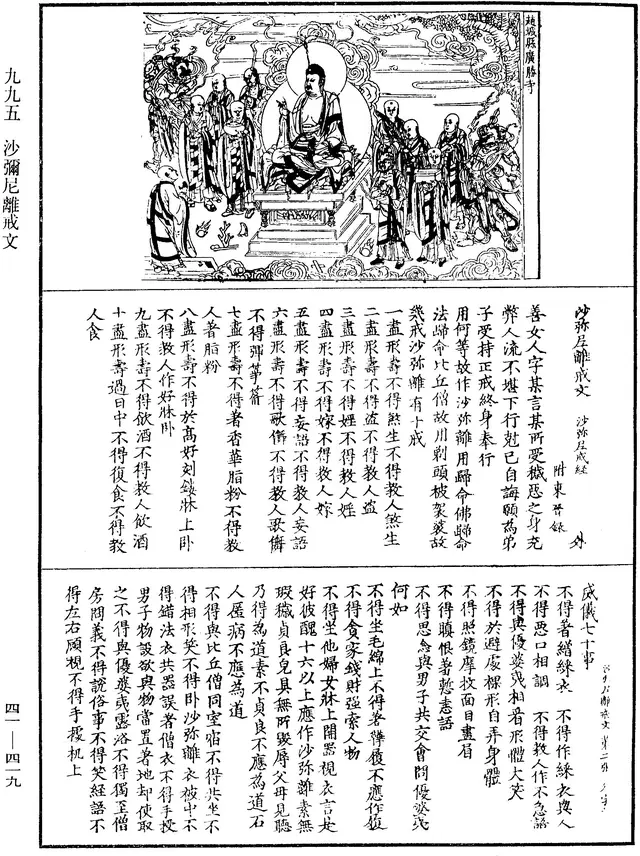 趙城縣廣勝寺
九九五　沙彌尼離戒文
沙弥尼離戒文　沙弥尼戒經
附東晉錄　外
善女人字某言某所受穢惡之身充
弊人流不堪下行尅已自誨願為弟
子受持正戒終身奉行
用何等故作沙弥離用歸命佛歸命
法歸命比丘僧故用剃頭被袈裟故
幾戒沙弥離有十戒
一盡形壽不得煞生不得教人煞生
二盡形壽不得盜不得教人盜
三盡形壽不得婬不得教人婬
四盡形壽不得嫁不得教人嫁
五盡形壽不得妄語不得教人妄語
六盡形壽不得歌儛不得教人歌儛
不得彈箏笛
七盡形壽不得著香華脂粉不得教
人著脂粉
八盡形壽不得於高好刻鏤牀上卧
不得教人作好牀卧
九盡形壽不得飲酒不得教人飲酒
十盡形壽過日中不得復食不得教
人食
威儀七十事
不得著繒綵衣　不得作綵衣與人
不得惡口相調　不得教人作不急語
不得與優婆夷相看形體大笑
不得於避處裸形自弄身體
不得照鏡摩抆面目畫眉
不得瞋恨著愁恚語
不得思念與男子共交會問優婆夷
何如
不得坐毛綿上不得著韡履不應作𡲆
不得貪家錢財強索人物
不得坐他婦女牀上開器視衣言是
好彼醜十六以上應作沙弥離素無
瑕穢貞良完具無所毀辱父母見聽
乃得為道素不貞良不應為道石
人屋病不應為道
不得與比丘僧同室宿不得共坐不
得相形笑不得卧沙弥離衣被中不
得錯法衣共器誤著僧衣不得手授
男子物設欲與物當置著地却使取
之不得與優婆夷露浴不得獨至僧
房問義不得說俗事不得笑經語不
得左右顧視不得手據机上
四一—四一九